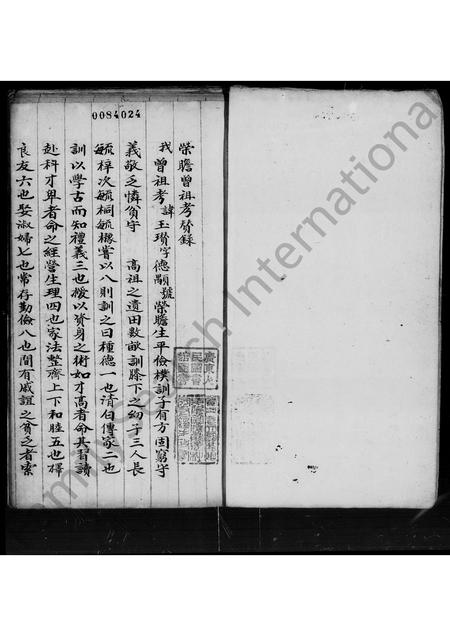 0084024
榮瞻曾祖考贊錄
我 曾祖考諱玉瓚字德顯號榮瞻生平儉樸訓子有方固窮守
義敬乏憐貧守 高祖之遺田數畝訓膝下之幼子三人長
毓梓次毓桐毓櫬嘗以八則訓之曰種德一也清白傳家二也
訓以學古而知禮義三也授以資身之術如才高者命其習讀
赴科才卑者命之經營生理四也家法整齊上下和睦五也擇
良友六也娶淑婦七也常存勤儉八也間有戚誼之貧乏者索
International